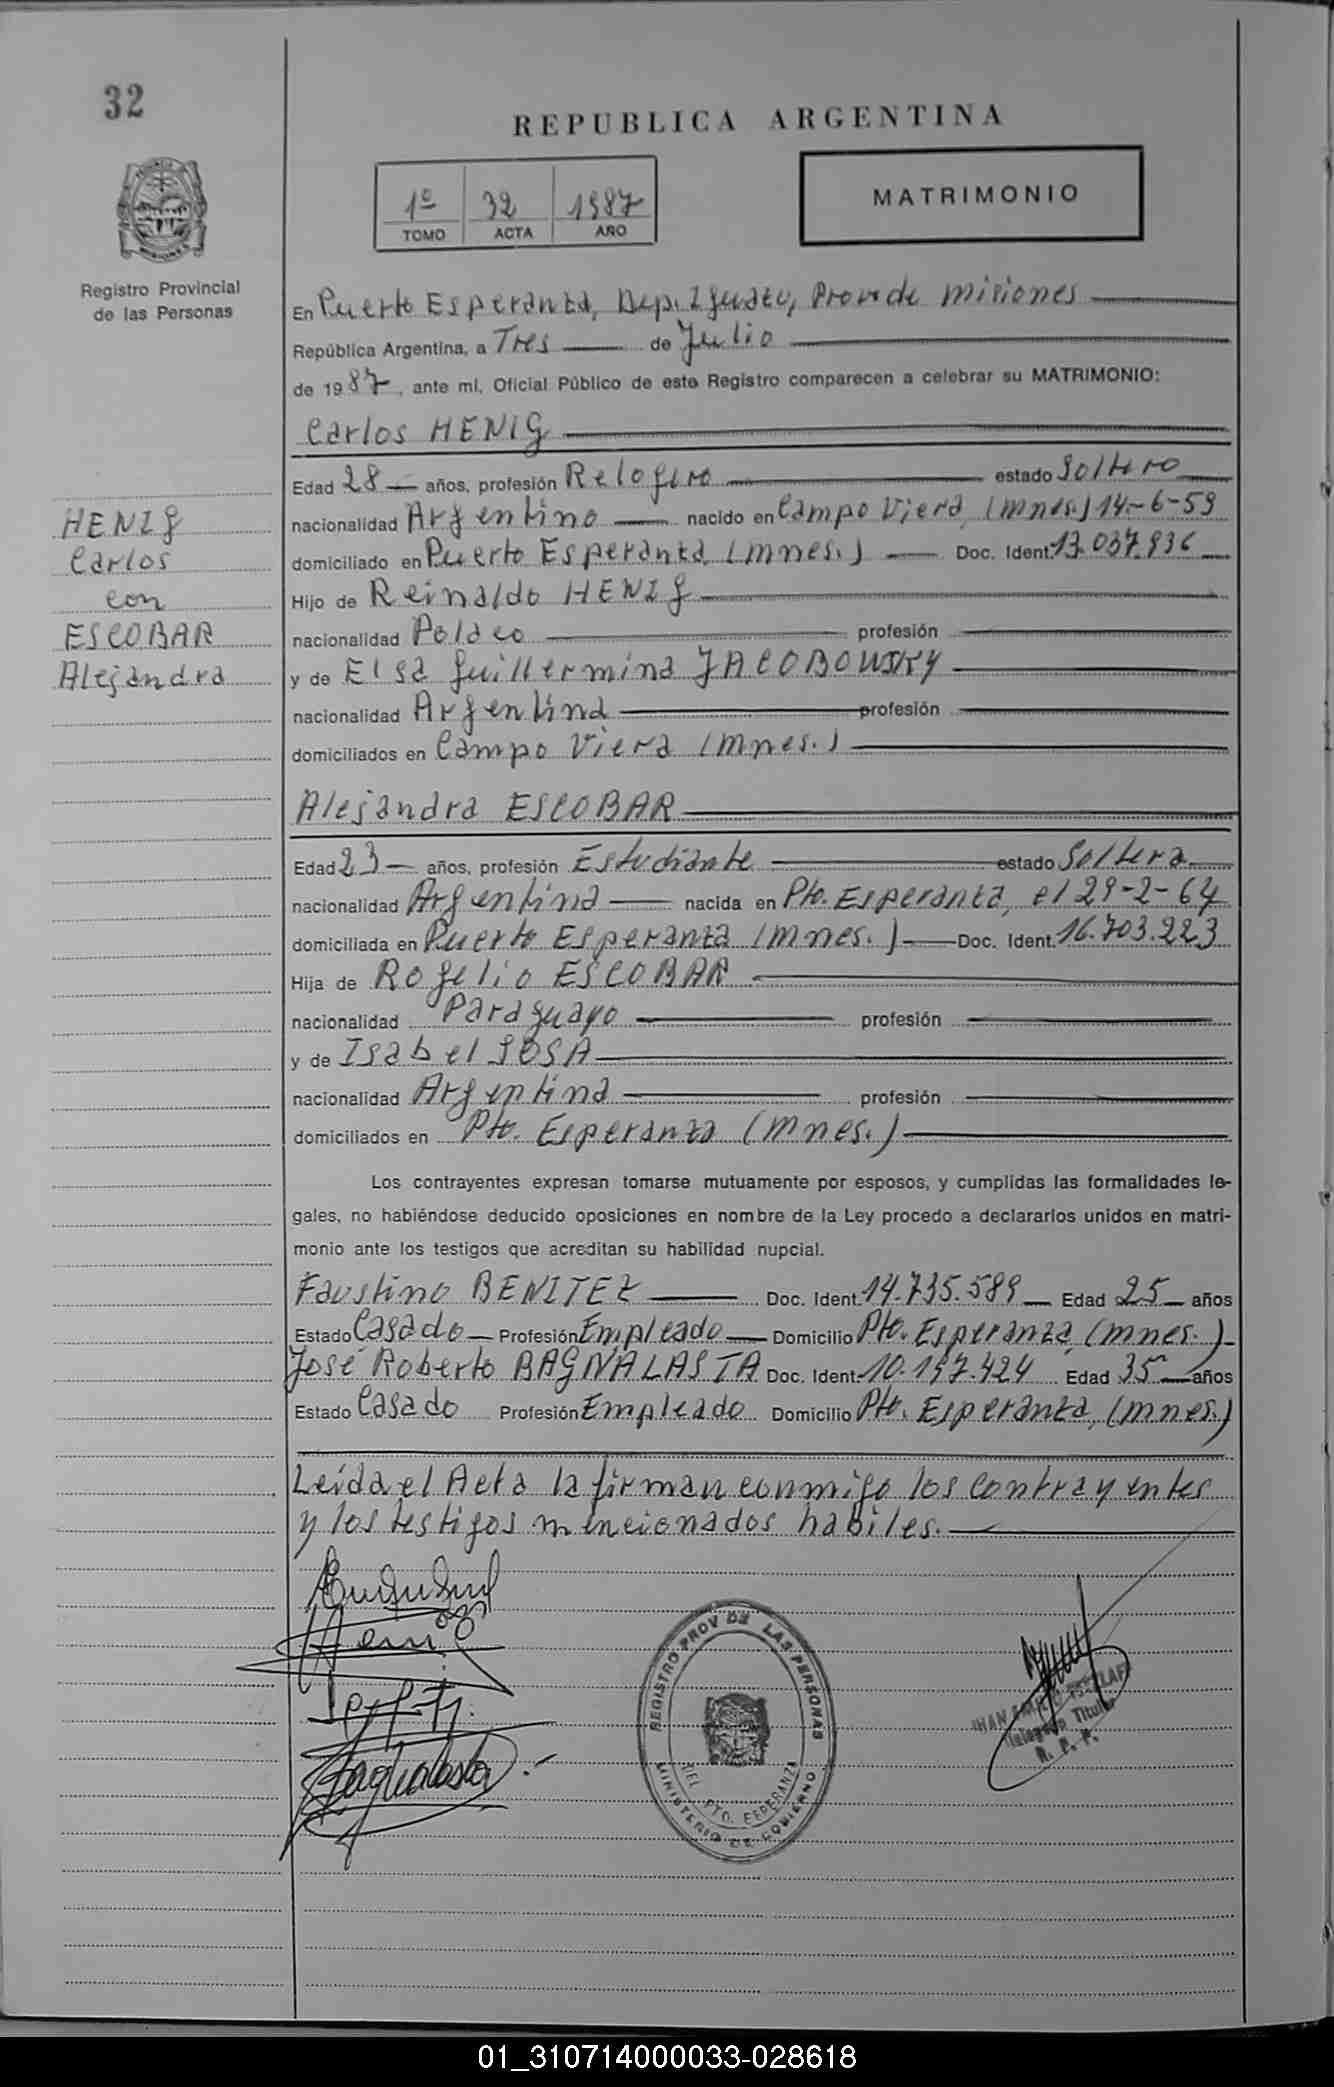 32
REPUBLICA ARGENTINA
1º 32 1987
TOMO ACTA AÑO
MATRIMONIO
Registro Provincial
de las Personas
En Puerto Esperanza, Dep. Iguazu, Prov. de Misiones
República Argentina, a Tres de Julio
de 1987, ante mí, Oficial Público de este Registro comparecen a celebrar su MATRIMONIO:
Carlos HENIG
Edad 28 años, profesión Relojero estado Soltero
nacionalidad Argentino nacido en Campo Viera, (Mnes.) 14-6-59
domiciliado en Puerto Esperanza, (Mnes.) Doc. Ident. 13.037.936
Hijo de Reinaldo HENIG
nacionalidad Polaco profesión
y de Elsa Guillermina JACOBOWSKY
nacionalidad Argentina profesión
domiciliados en Campo Viera (Mnes.)
HENIG
Carlos
con
ESCOBAR
Alejandra
Alejandra ESCOBAR
Edad 23 años, profesión Estudiante estado Soltera
nacionalidad Argentina nacida en Pto. Esperanza, el 29-2-64
domiciliada en Puerto Esperanza (Mnes.) Doc. Ident. 16.703.223
Hija de Rogelio ESCOBAR
nacionalidad Paraguayo profesión
y de Isabel SOSA
nacionalidad Argentina profesión
domiciliados en Pto. Esperanza (Mnes.)
Los contrayentes expresan tomarse mutuamente por esposos, y cumplidas las formalidades le-
gales, no habiéndose deducido oposiciones en nombre de la Ley procedo a declararlos unidos en matri-
monio ante los testigos que acreditan su habilidad nupcial.
Faustino BENITEZ Doc. Ident. 14.735.589 Edad 25 años
Estado Casado Profesión Empleado Domicilio Pto. Esperanza, (Mnes.)
José Roberto BAGNALASTA Doc. Ident. 10.197.424 Edad 35 años
Estado Casado Profesión Empleado Domicilio Pto. Esperanza, (Mnes.)
Leída el Acta la firman conmigo los contrayentes
y los testigos mencionados hábiles.
REGISTRO PROV DE LAS PERSONAS
MINISTERIO DE GOBIERNO
DEL. PTO. ESPERANZA
Delegado Titular
R. P. P.
01_310714000033-028618